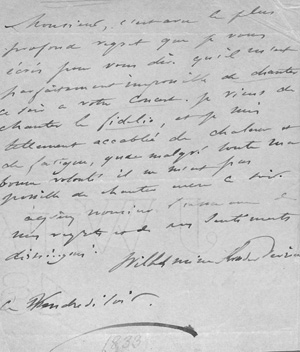 Monsieur, c'est avec le plus
profond regret que je vous
écris pour vous dire qu'il m'est
parfaitement impossible de chanter
ce soir a votre Concert. Je viens de
chanter le fidelio, et je suis
tellement accablé de chaleur et
de fatigue, que malgré toute ma
bonne volonté il ne m'est pas
possible de chanter encore ce soir.
agréez monsieur
mes regrets et des sentiments
distingués.
Wilhelmine Schröder Devrient
ce Vendredi soir.
1833